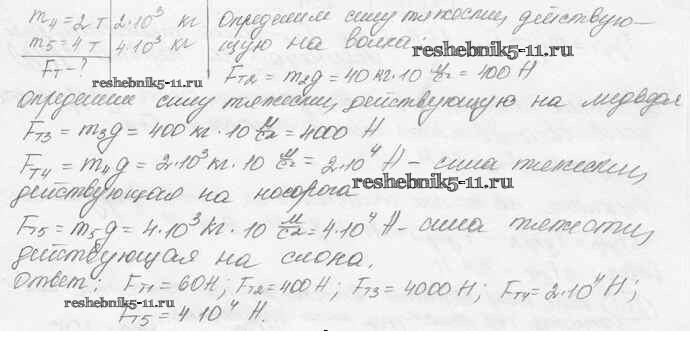 m₄ = 2 т | 2·10³ кг | Определим силу тяжести, действую-
m₅ = 4 т | 4·10³ кг | щую на волка:
reshebnik5-11.ru
Fт - ?
Fт2 = m₂g = 40 кг · 10 м/с² = 400 Н
reshebnik5-11.ru
Определим силу тяжести, действующую на медведя
Fт3 = m₃g = 400 кг · 10 м/с² = 4000 Н
Fт4 = m₄g = 2·10³ кг · 10 м/с² = 2·10⁴ Н - сила тяжести,
действующая на носорога
reshebnik5-11.ru
Fт5 = m₅g = 4·10³ кг · 10 м/с² = 4·10⁴ Н - сила тяжести,
действующая на слона.
Ответ: Fт1 = 60 Н; Fт2 = 400 Н; Fт3 = 4000 Н; Fт4 = 2·10⁴ Н;
reshebnik5-11.ru
Fт5 = 4·10⁴ Н.